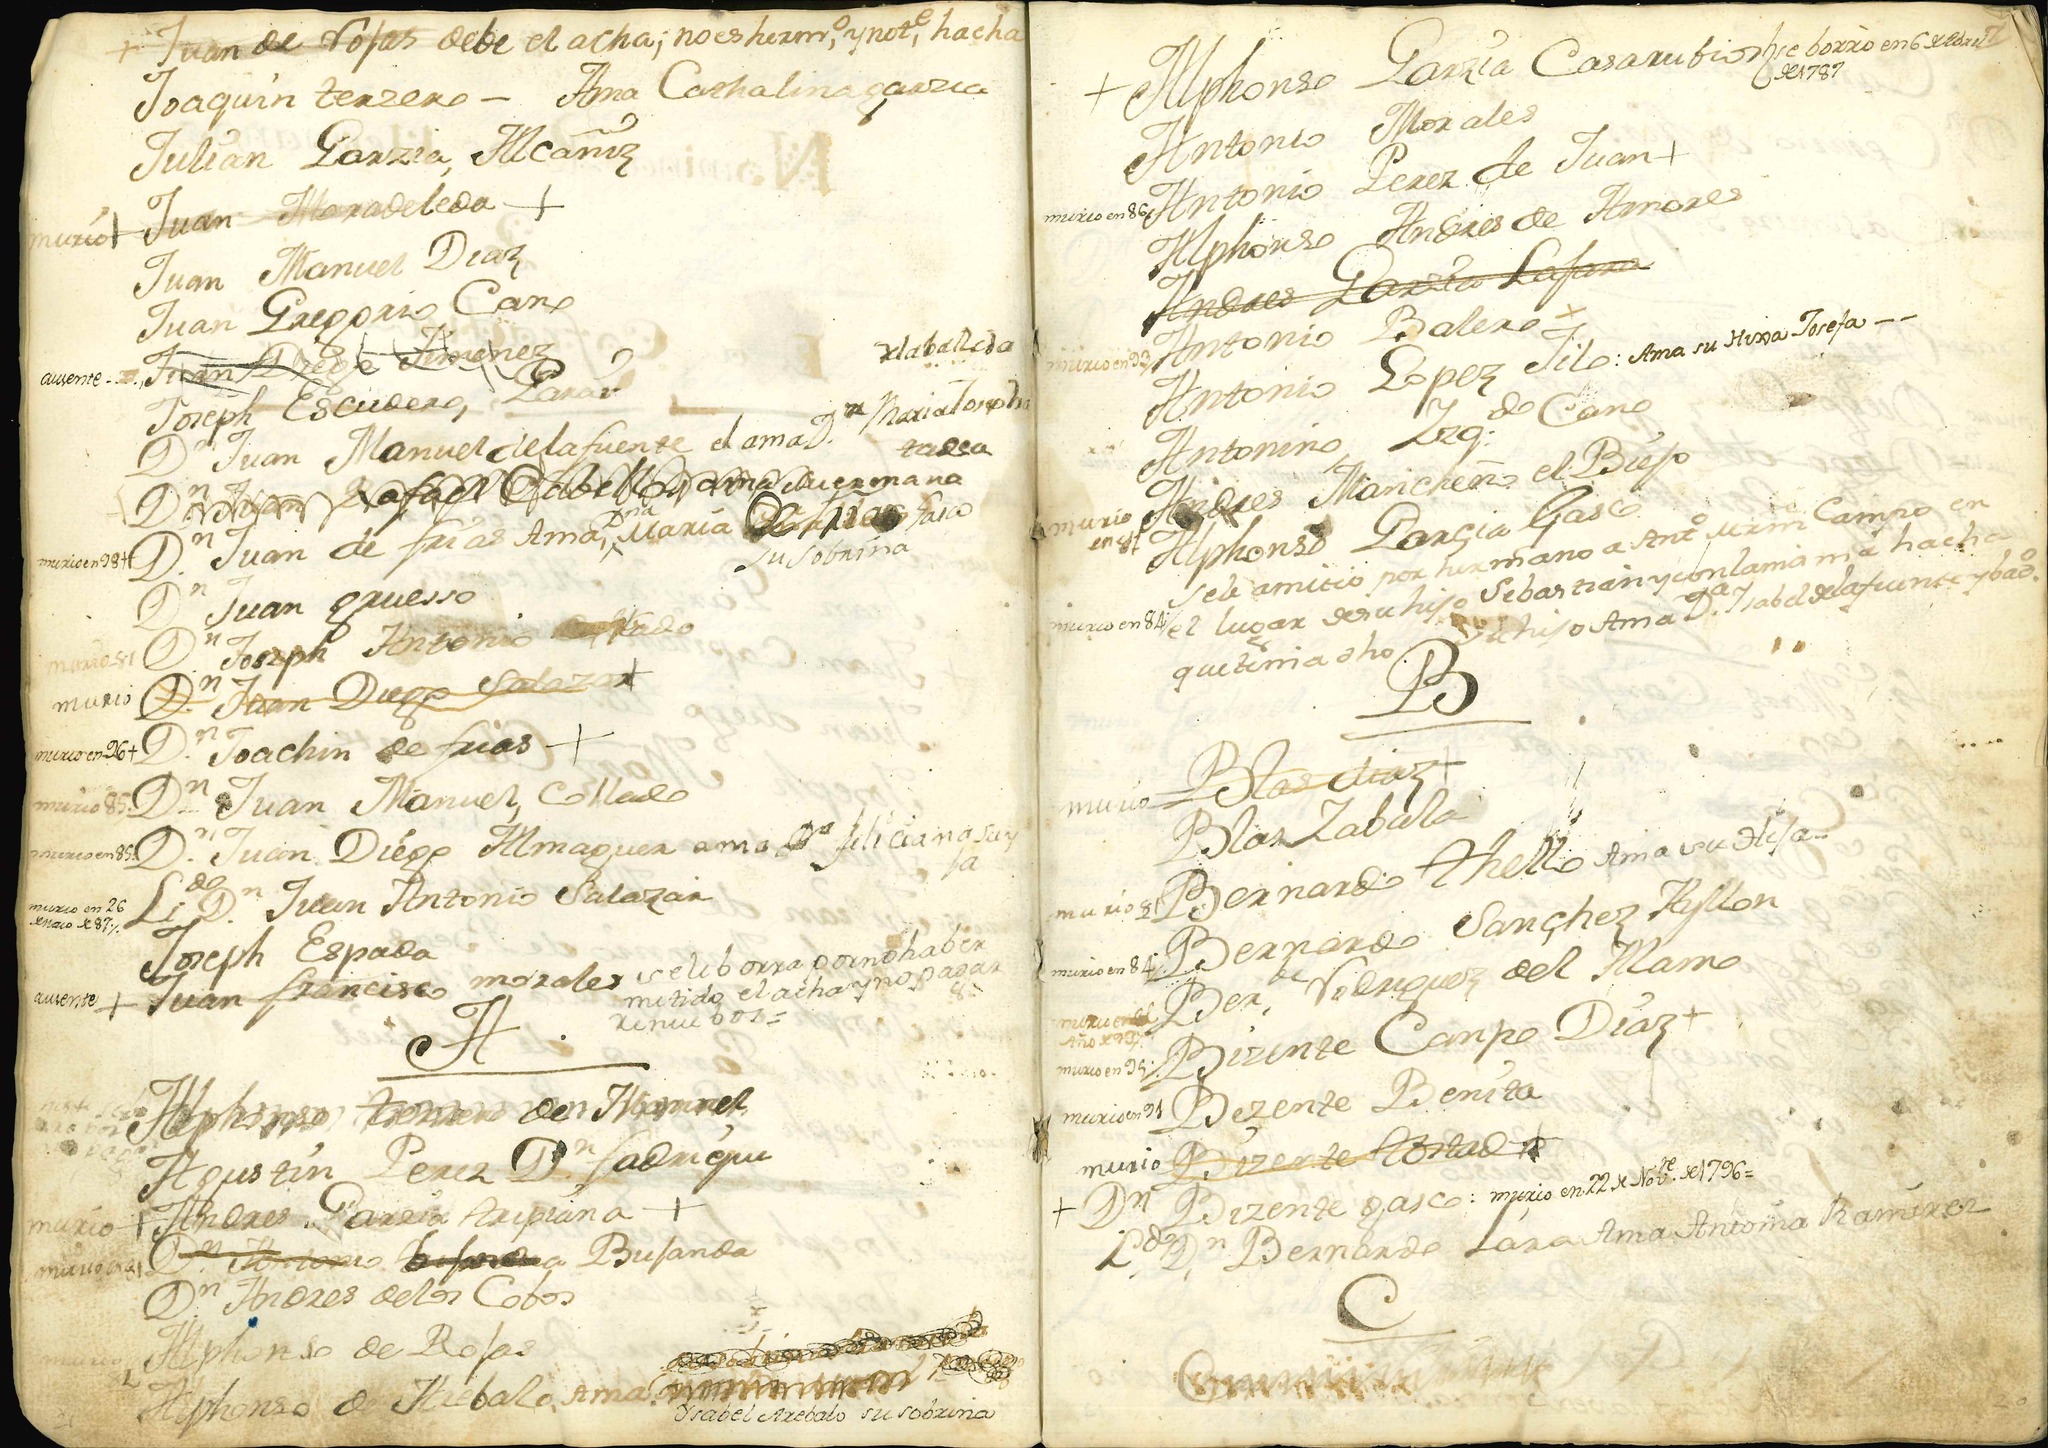 + Juan de Rojas debe el acha; no es herm.o, y no t.e hacha
Joaquin terzero — Ama Cathalina garzia
Julian Garzia, Alcañiz
murió + Juan Maradeleda +
Juan Manuel Diaz
Juan Gregorio Cano
ausente Juan Diego Jimenez
Joseph Escudero,
D.n Juan Manuel de la fuente el ama D.ª Maria Josepha
tadea
D.n Juan Rafael ama su ermana
murio en 98 + D.n Juan de frias Ama, Dña Maria fasco
su sobrina
D.n Juan gruesso
murio 81 D.n Joseph Antonio
murio D.n Juan Diego Salazar +
murio en 96 + D.n Joachin de frias +
murio 85 D.n Juan Manuel, Collado
murio en 85 D.n Juan Diego Almaguer ama D.ª feliciana su y
ja
murio en 26 de de 87 Li.do D.n Juan Antonio Salazar
Joseph Espada
ausente + Juan francisco morales se le borra por no haber
mitido el acha y no pagar
A
Alphonso de
Agustin Perez D.n fadrique
murio + Andres Garzia Aripiana +
murio en 81 D.n Antonio Busanda
D.n Andres de los Cobos
murio Alphonso de Rojas
Alphonso de Arebalo, Ama
Ysabel Arebalo su sobrina
+ Alphonso Garzia Casarubios se borró en 6 de
de 1787
Antonio Morales
murio en 86 Antonio Perez de Juan +
Alphonso Andres de Amores
Andres Garzia
murio en 93 Antonio Balero +
Antonio Lopez Silo: Ama su Hixa Josefa --
Antonino Izq.do Cano
Andres Mancheño el Biejo
murio en 87 Alphonso Garzia Gasco
se le amitio por hermano a Ant.o Campo en
murio en 84 el lugar de su hijo Sebastian y con la misma hacha
que tenia dho su hijo Ama D.ª Isabel de la fuente y
B
murio Blas diaz +
Blas Zabala
murio 81 Bernardo thello Ama su Hija
murio en 84 Bernardo Sanchez Ayllon
Ber.de Rodriguez del Alamo
murio en 95 Bizente Campo Diaz +
murio en 91 Bezente Benita
murio Bizente Hortado +
+ D.n Bizente gasco: murio en 22 de Nob.re de 1796=
L.do D.n Bernardo Lara Ama Antonia Ramirez
C